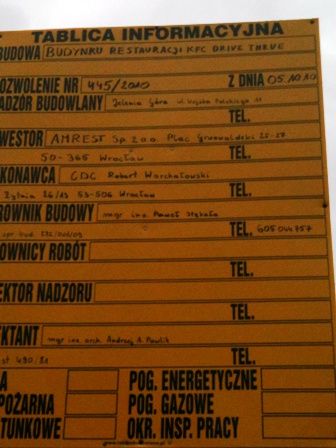 TABLICA INFORMACYJNA
BUDOWA BUDYNKU RESTAURACJI KFC DRIVE THRUE
OZWOLENIE NR 445/2010 Z DNIA 05.10.10
ADZÓR BUDOWLANY Jelenia Góra ul. Wojska Polskiego 11
TEL.
WESTOR AMREST Sp. z o.o. Plac Grunwaldzki 25-27
50-365 Wrocław TEL.
KONAWCA CDC Robert Warchałowski
Żytnia 26/13 53-506 Wrocław TEL.
ROWNIK BUDOWY mgr inż. Paweł
upr. bud. TEL. 605 044 757
OWNICY ROBÓT
TEL.
EKTOR NADZORU
TEL.
EKTANT mgr inż. arch. Andrzej A. Pawlik
st 490/81 TEL.
A POG. ENERGETYCZNE
POŻARNA POG. GAZOWE
TUNKOWE OKR. INSP. PRACY